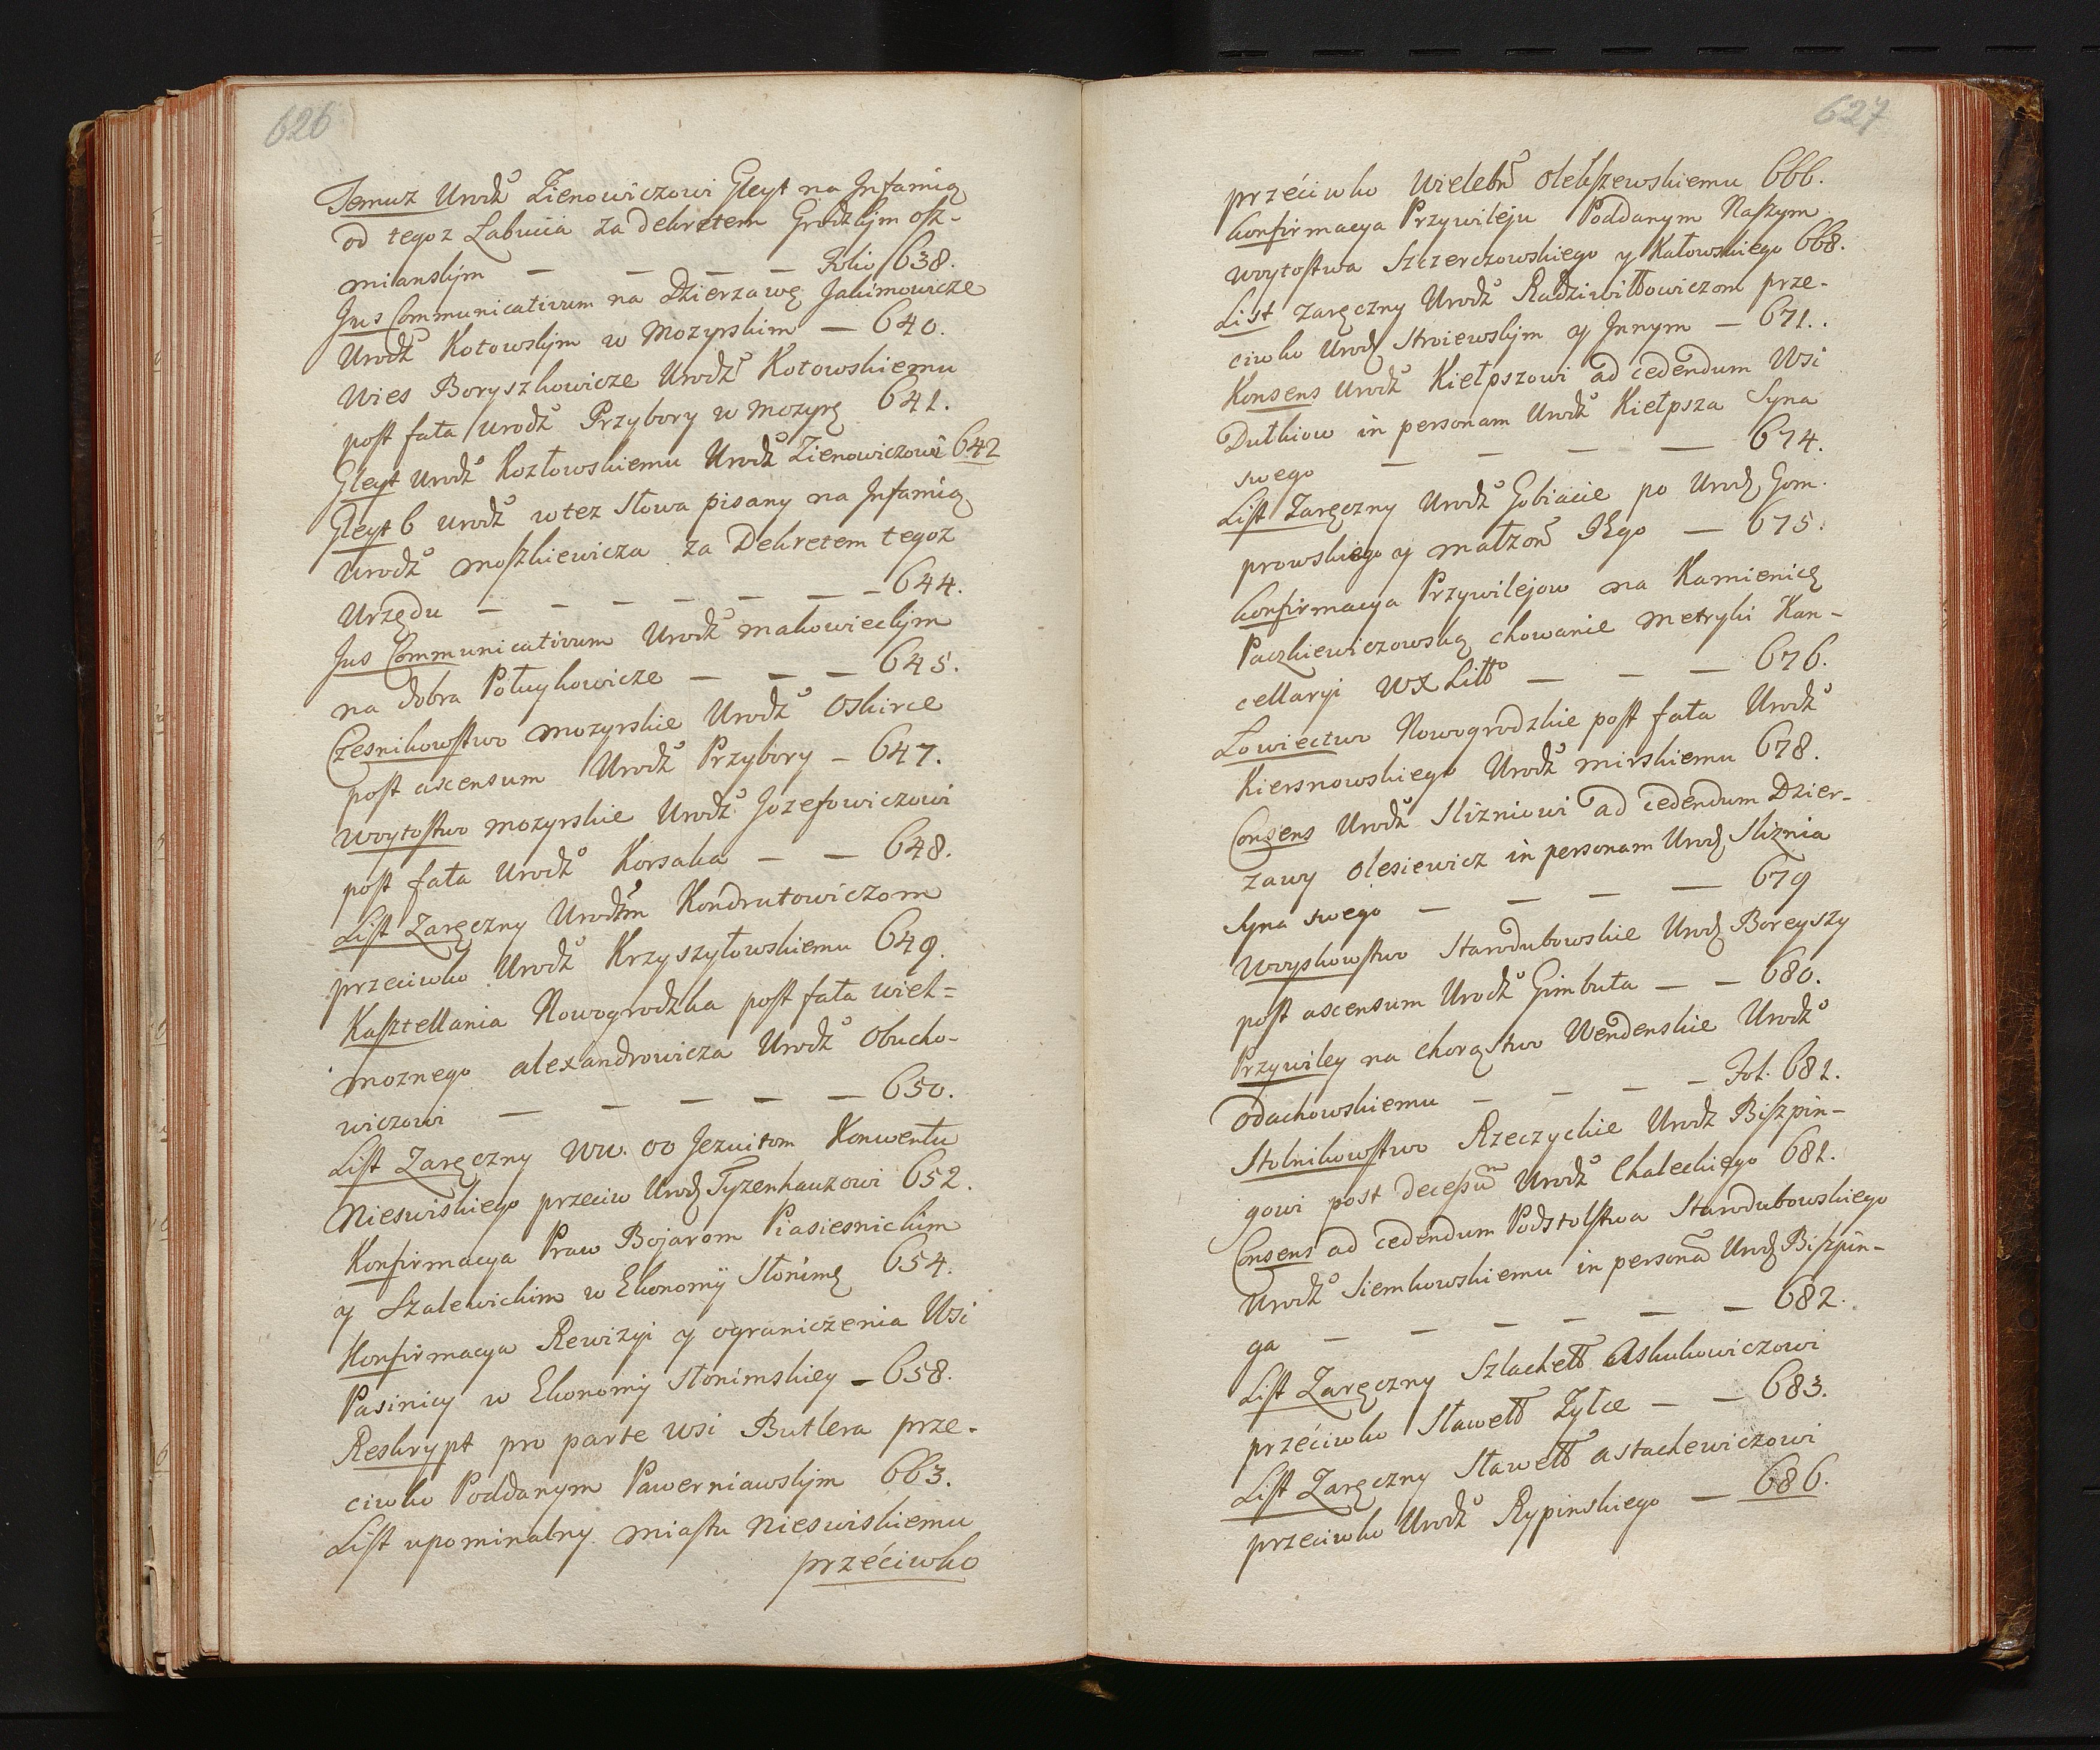 626
Temuz Urodź° Zienowiczowi Gleyt na Infamią
od tegoz Łabucia za Dekretem Grodzkim osz-
mianskim — — — — Folio 638.
Jus Communicativum na Dzierzawę Jakimowicze
Urodź° Kotowskim w Mozyrskim — 640.
Wies Boryszkowicze Urodź° Kotowskiemu
post fata Urodź° Przybory w Mozyrę 641.
Gleyt Urodź° Kozłowskiemu Urodź° Zienowiczowi 642
Gleyt 6 Urodź° w tez słowa pisany na Infamią
Urodź° Moszkiewicza za Dekretem tegoz
Urzędu — — — — — — — 644.
Jus Communicativum Urodź° Makowieckim
na dobra Połuykowicze — — — 645.
Czesnikowstwo Mozyrskie Urodź° Oskirce
post ascensum Urodź° Przybory — 647.
Woytostwo Mozyrskie Urodź° Jozefowiczowi
post fata Urodź° Korsaka — — 648.
List Zaręczny Urodźm Kondratowiczom
przeciwko Urodź° Krzyszyłowskiemu 649.
Kasztellania Nowogrodzka post fata wiel=
moznego alexandrowicza Urodź° Obucho-
wiczowi — — — — — 650.
List Zaręczny WW. OO Jezuitom Konwentu
Nieswiskiego przeciw Urodz Tyzenhauzowi 652.
Konfirmacya Praw Bojarom Piasiesnickim
y Szalewickim w Ekonomij Słonimę 654.
Konfirmacya Rewizyi y ograniczenia Wsi
Pasinicy w Ekonomij Słonimskiey — 658.
Reskrypt pro parte wsi Butlera prze-
ciwko Poddanym Pawerniawskim 663.
List upominalny miastu Nieswiskiemu
przéciwko
627
przéciwko Wielebń Olekszewskiemu 666.
Konfirmacya Przywileju Poddanym Naszym
Woytostwa Szczerczowskiego y Kałowskiego 668.
List zaręczny Urodź° Radziwiłłowiczom prze-
ciwko Urodz Stroiewskim y Jnnym — 671.
Konsens Urodź° Kiełpszowi ad cedendum Wsi
Dułkiow in personam Urodź° Kiełpsza Syna
swego — — — — 674.
List Zaręczny Urodź° Gobiacie po Urodz Gom-
prowskiego y małzoń Jego — 675.
Konfirmacya Przywilejow na Kamienicę
Paczkiewiczowską chowanie Metryki Kan-
cellaryi WX Litt° — — — 676.
Łowiectwo Nowogrodzkie post fata Urodź°
Kiersnowskiego Urodź° Mirskiemu 678.
Consens Urodź° Slizniowi ad cedendum Dzier-
zawy Olesiewicz in personam Urodz Sliznia
Syna swego — — — — 679
Woyskowstwo Starodubowskie Urodz Boreyszy
post ascensum Urodź° Gimbuta — — 680.
Przywiley na chorąstwo Wendenskie Urodź°
Odachowskiemu — — — — Fol. 681.
Stolnikowstwo Rzeczyckie Urodź Biszpin-
gowi post decessum Urodź° Chaleckiego 681.
Consens ad cedendum Podstolstwa Starodubowskiego
Urodź° Siemkowskiemu in personā Urodz Biszpin-
ga — — — — — — 682.
List Zaręczny Szlachett° Askukowiczowi
przéciwko Sławett° Zyłce — — 683.
List Zaręczny Sławett° Astachewiczowi
przeciwko Urodź° Rypinskiego — 686.